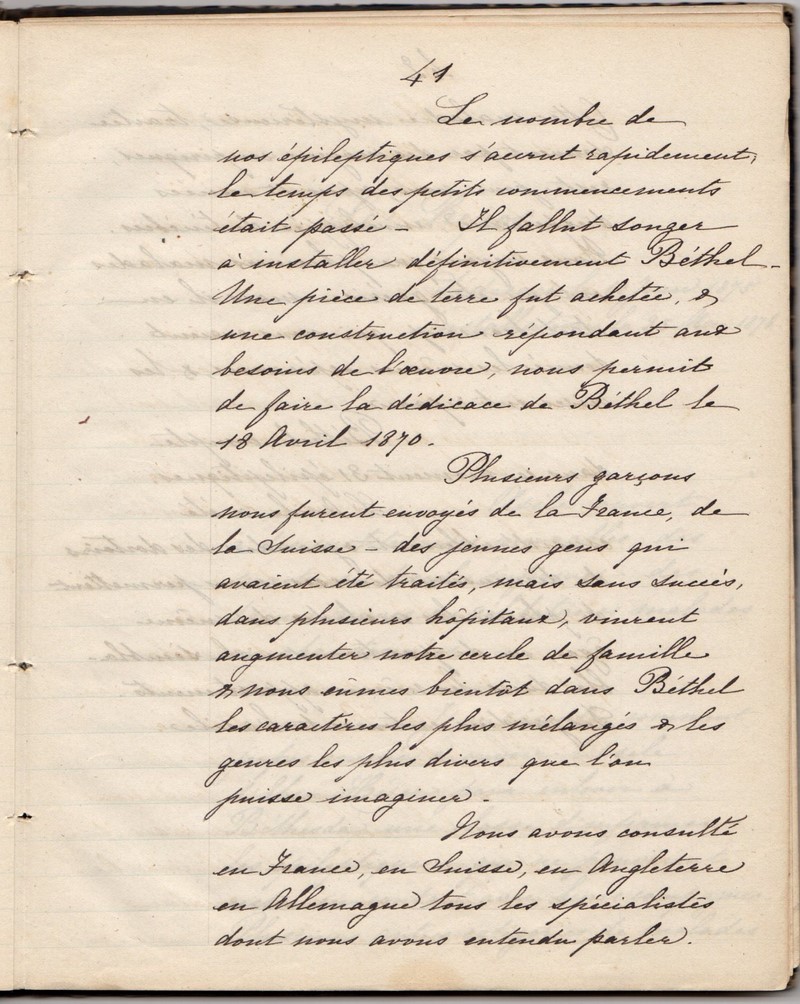 41
Le nombre de
nos épileptiques s'accrut rapidement;
le temps des petits commencements
était passé – Il fallut songer
à installer définitivement Béthel –
Une pièce de terre fut achetée, &
une construction répondant aux
besoins de l'œuvre, nous permit
de faire la dédicace de Béthel le
18 Avril 1870.
Plusieurs garçons
nous furent envoyés de la France, de
la Suisse – des jeunes gens qui
avaient été traités, mais sans succès,
dans plusieurs hôpitaux, vinrent
augmenter notre cercle de famille
& nous eûmes bientôt dans Béthel
les caractères les plus mélangés & les
genres les plus divers que l'on
puisse imaginer –
Nous avons consulté
en France, en Suisse, en Angleterre
en Allemagne tous les spécialistes
dont nous avons entendu parler.